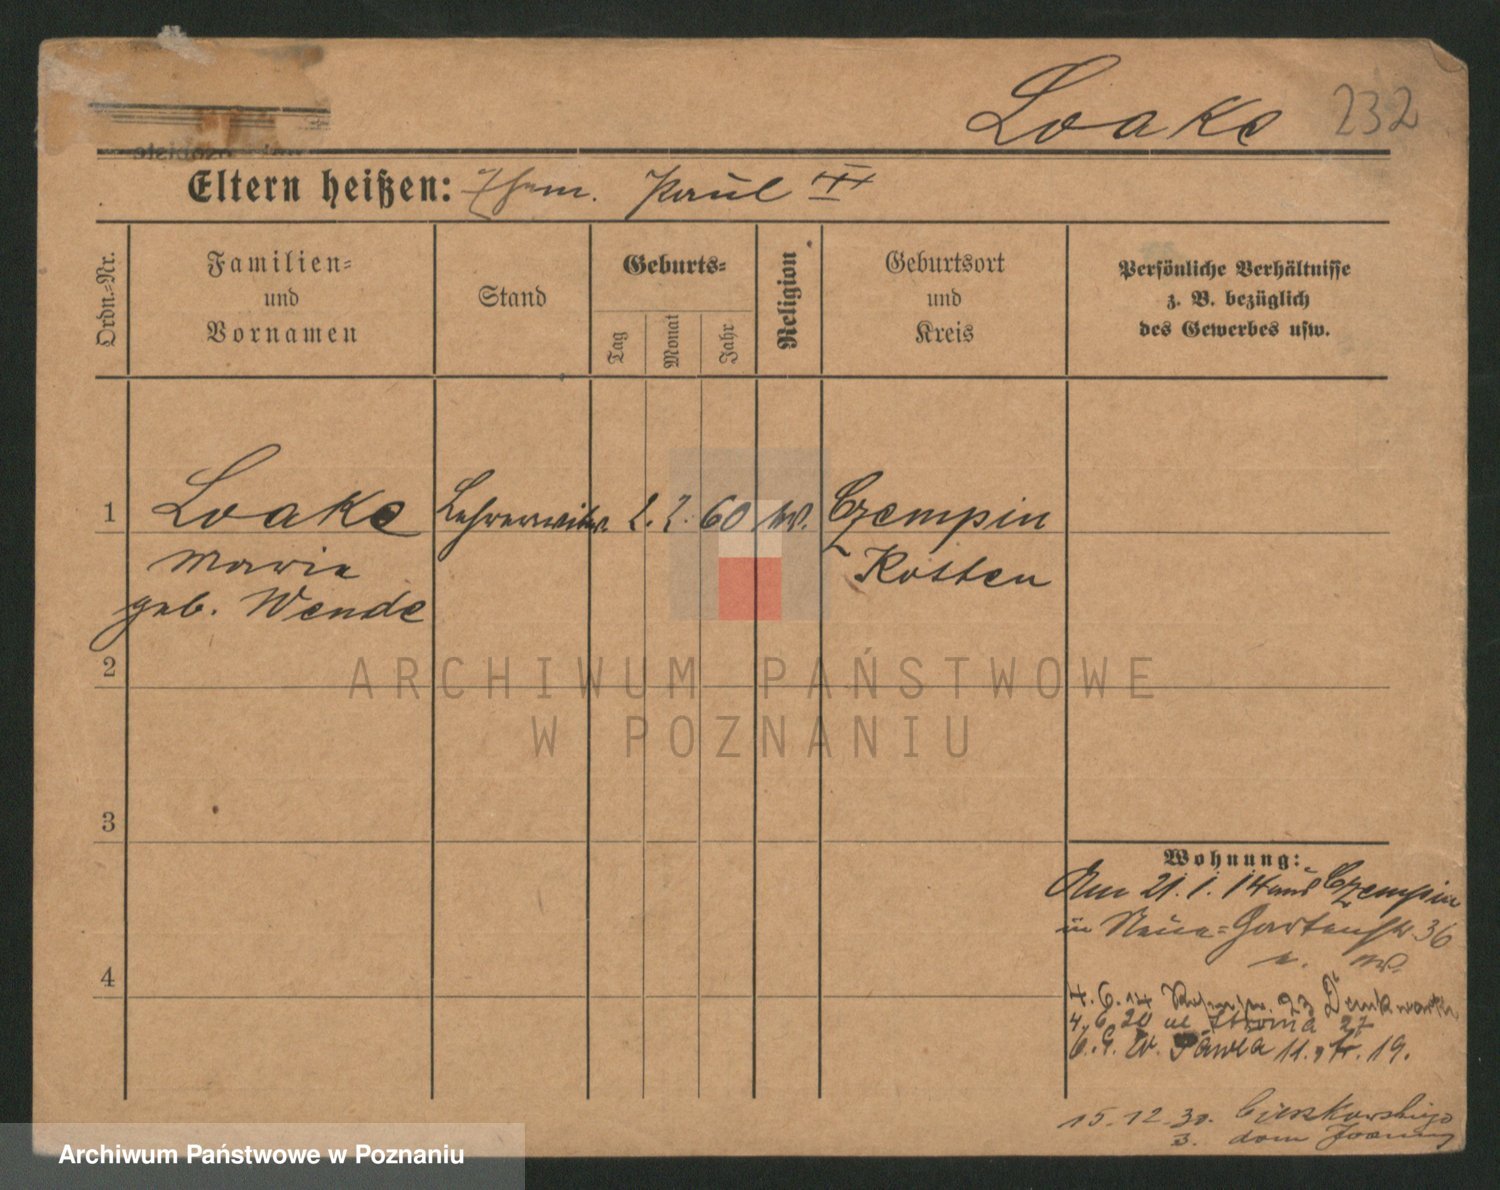 Loake 232
Eltern heißen: Ehem. Paul III
Ordn.-Nr.
Familien-
und
Vornamen
Stand
Geburts-
Tag
Monat
Jahr
Religion
Geburtsort
und
Kreis
Persönliche Verhältnisse
z. B. bezüglich
des Gewerbes usw.
1 Loake Lehrerwitw. 2. 2. 60 Czempin
Marie Kosten
geb. Wende
2
3
4
Wohnung:
Am 21. 1. 14 aus Czempin
in Neue-Gartenstr. 36
4. 6. 14 23 Denkwarth
4. 6. 20 ul. Stroma 23
W. Pawła 11. 19.
15. 12. 30. Cieszkowskiego
3. dom Joanny
ARCHIWUM PAŃSTWOWE
W POZNANIU
Archiwum Państwowe w Poznaniu